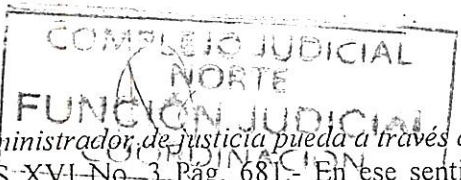 COMPLEJO JUDICIAL
NORTE
FUNCIÓN JUDICIAL
COORDINACIÓN
ministrador de justicia pueda a través
S XVI No. 3 Pág. 681.- En ese senti